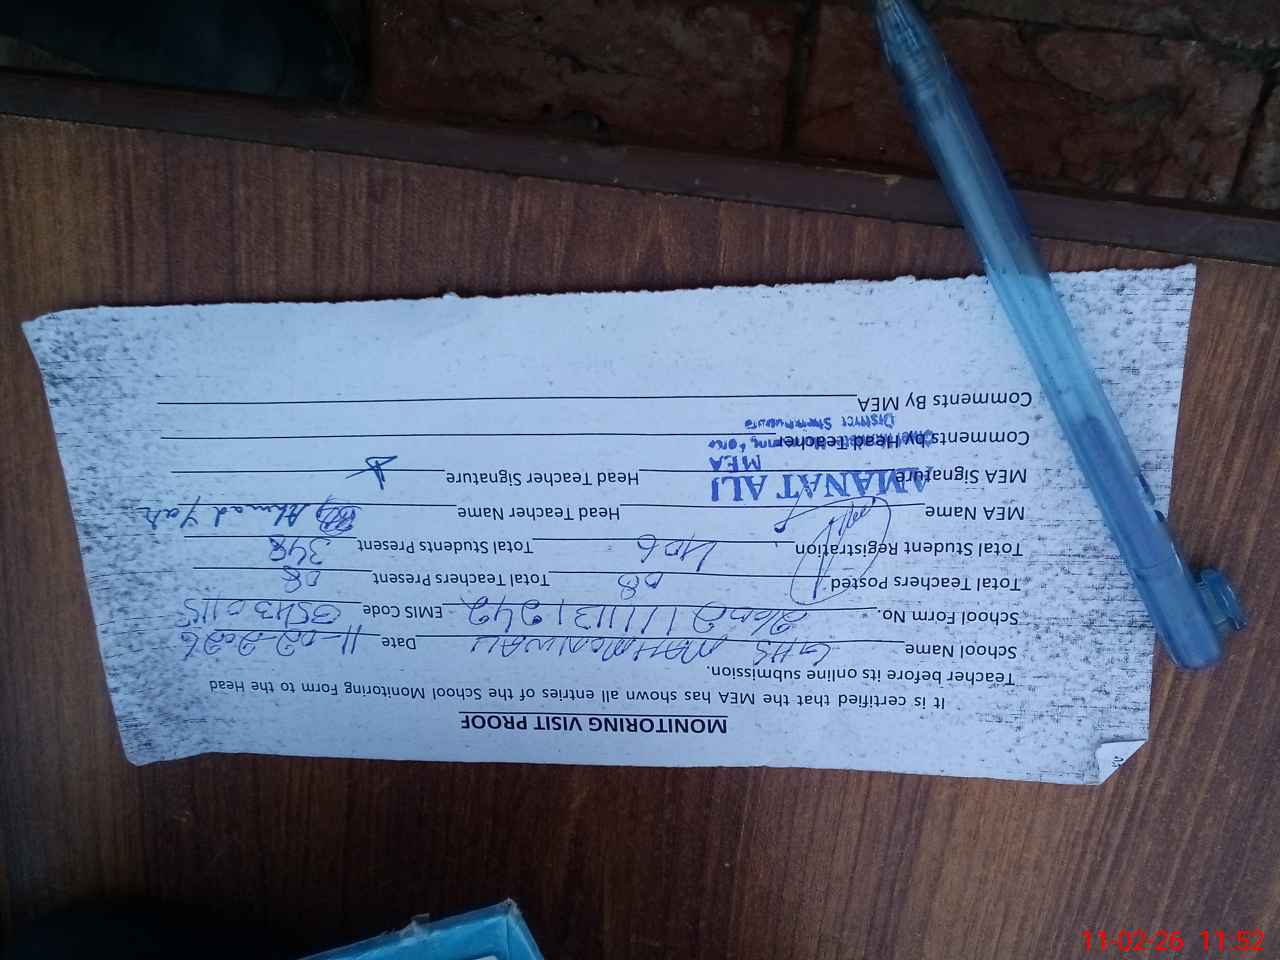 MONITORING VISIT PROOF
It is certified that the MEA has shown all entries of the School Monitoring Form to the Head
Teacher before its online submission.
School Name GHS Date 11-02-2026
School Form No. EMIS Code
Total Teachers Posted 08 Total Teachers Present 08
Total Student Registration 406 Total Students Present 348
MEA Name Head Teacher Name Ahmad
MEA Signature AMANAT ALI Head Teacher Signature
MEA
Comments by Head Teacher
Comments By MEA
11-02-26 11:52